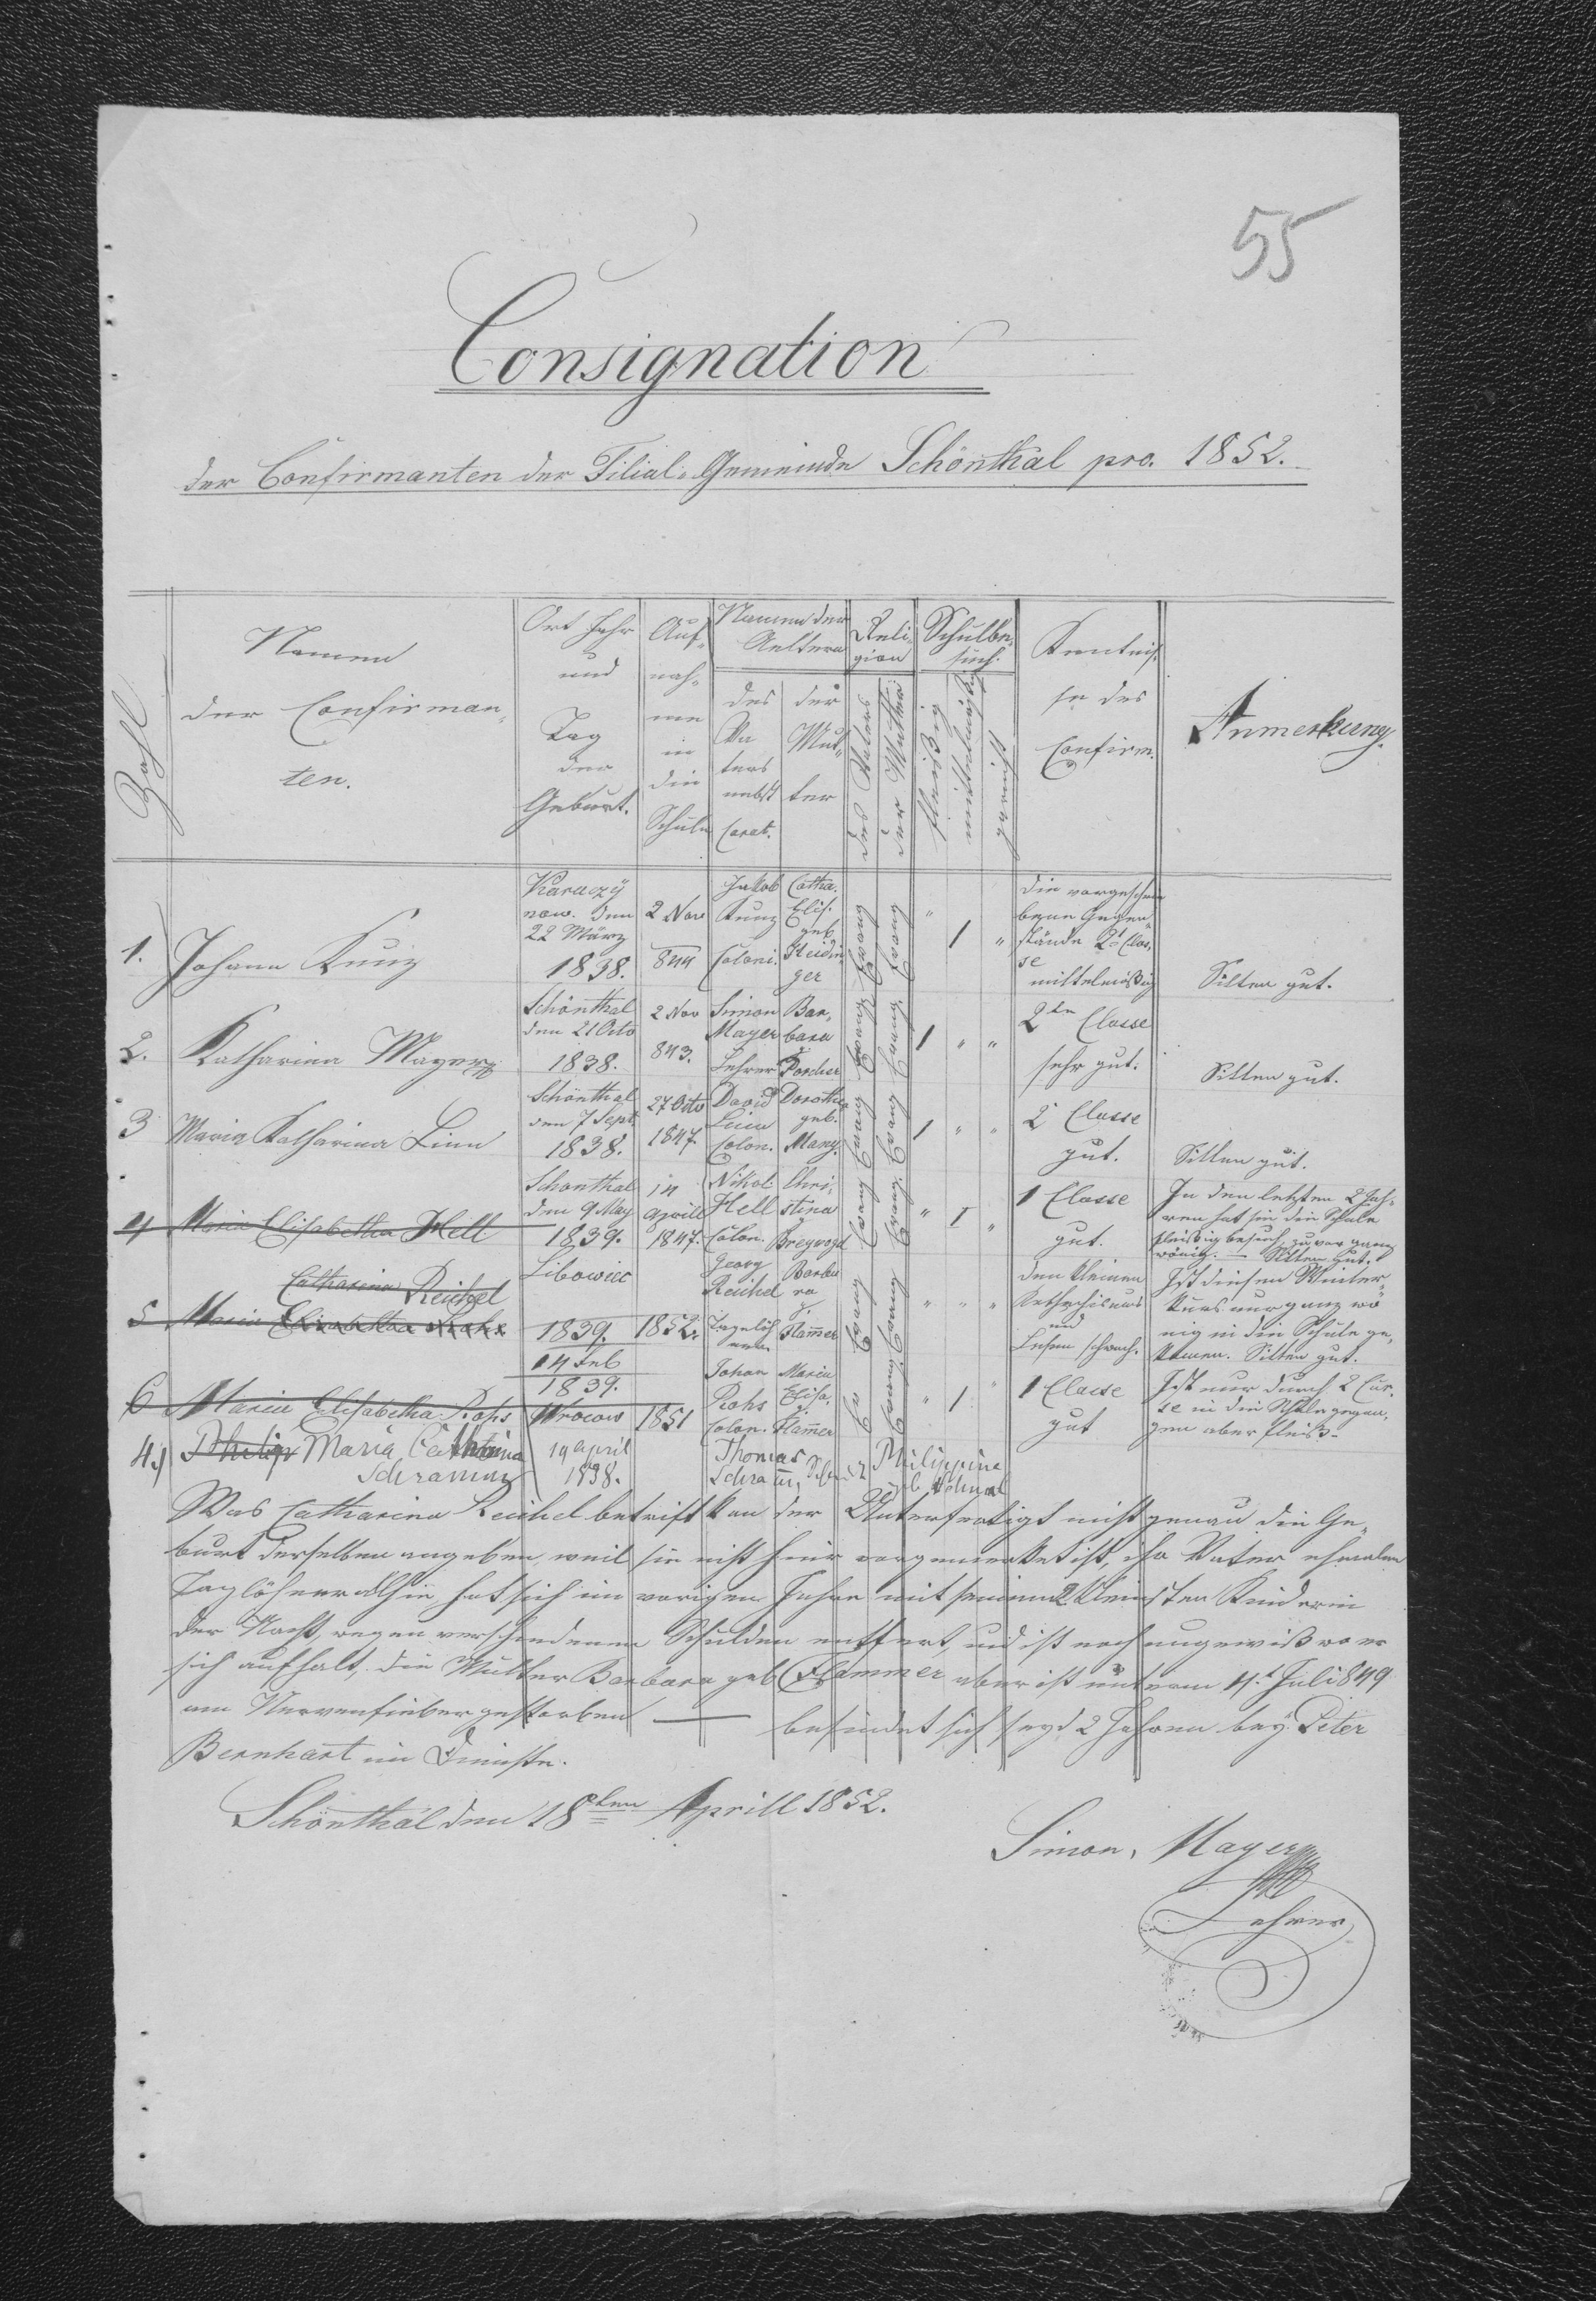 55
Consignation
der Confirmanten der Filial-Gemeinde Schönthal pro. 1852.
Zahl
Namen
der Confirman-
ten.
Ort Jahr
und
Tag
der
Geburt.
Auf-
nah-
me
in
die
Schule
Namen der
Aeltern
des
Va
ters
nebst
Carat.
der
Mut-
ter
Reli-
gion
des Vaters
der Mutter
Schulbe-
such.
fleißig
mittelmäßig
Kentniß-
se des
Confirm.
Anmerkung.
1.
Johann Kunz
Karaczÿ
now. den
22 März
1838.
2 Nov
844
Jakob
Kunz
Coloni.
Catha.
Elis.
geb.
Heidin-
ger
Evang
Evang
"
1
"
die vorgeschrie
bene Gegen-
stände 2t Clas-
se
mittelmäßig
Sitten gut.
2.
Katharina Mayer
Schönthal
den 21 Octo
1838.
2 Nov
843.
Simon
Mayer
Lehrer
Bar-
bara
g.
Porcher
Evang
Evang.
1
"
"
2te Classe
sehr gut.
Sitten gut.
3
Maria Katharina Linn
Schönthal
den 7 Sept.
1838.
27 Octo
1847.
David
Linn
Colon.
Dorothea
geb.
Mang.
Evang
Evang
1
"
"
2 Classe
gut.
Sitten gut.
4
Maria Elisabetha Hell
Schönthal
den 9 May
1839.
14
Aprill
1847.
Nikol.
Hell
Colon.
Chri-
stina
Breyvogel
Evang
Evang.
"
1
"
1 Classe
gut.
In den letzten 2 Jah-
ren hat sie die Schule
fleißig besucht, zuvor ganz
wenig. — Sitten gut.
5
Catharina Reichel
Maria Elisabetha Rohs
Libowiec
1839.
1852.
Georg
Reichel
Taglöh
ner
Barba
ra
g.
Flam̄er
Evang
Evang
"
"
"
den kleinen
Kathechismus
und
Lesen schwach.
Ist diesen Winter-
kurs nur ganz wö
nig in die Schule ge-
komen. Sitten gut.
6
Maria Elisabetha Rohs
14 Feb
1839.
Wrocow
1851
Johan
Rohs
Colon.
Maria
Elisa.
g.
Flam̄er
Ev
Evang.
"
1
"
1 Classe
gut
Ist nur durch 2 Cur-
se in die Schule gegan-
gen aber fleiß.
4.)
Philip Maria Catharina
Schramm
19 April
1838.
Thomas
Schram̄,
Philippine
Was Catharina Reichel betrift kan der Unterfertigt nicht genau die Ge-
burt derselben angeben, weil sie nicht hier vorgemerket ist, ihr Vater ehmalen
Taglöhner allhie hat sich im vorigen Jahre mit seinen 2 kleinsten Kinder in
der Nacht, wegen verschiedenen Schulden entfert, und ist noch ungewiß wo er
sich aufhalt, die Mutter Barbara geb Flammer aber ist unterm 4t Juli 849
am Nervenfieber gestorben — befindet sich seyd 2 Jahren bey Peter
Bernhart im Dienste.
Schönthal den 18ten Aprill 1852.
Simon, Mayer
Lehrer